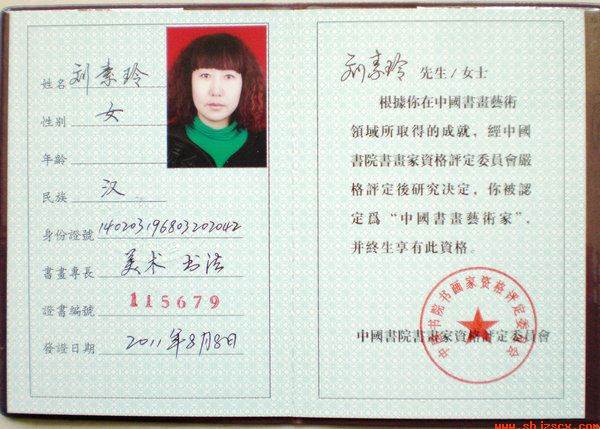 姓名 刘素玲
性别 女
年齡
民族 汉
身份證號 140203196803202042
書畫專長 美术 书法
證書編號 115679
發證日期 2011年8月8日
刘素玲 先生/女士
根據你在中國書畫藝術
領域所取得的成就，經中國
書院書畫家資格評定委員會嚴
格評定後研究決定，你被認
定爲“中國書畫藝術家”，
并終生享有此資格。
中國書院書畫家資格評定委員會
中国书院书画家资格评定委员会
www.shjzscx.com